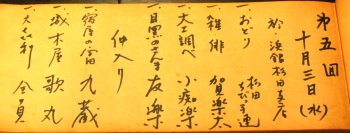 第五回
十月三日(水)
於.浜館杉田支店
一.おどり 杉田ちびっ子連
一.雑俳 賀楽太
一.大工調べ 小痴楽
一.目黒のさんま 友楽
仲入り
一.宿屋の富 九蔵
一.城木屋 歌丸
一.大喜利 全員